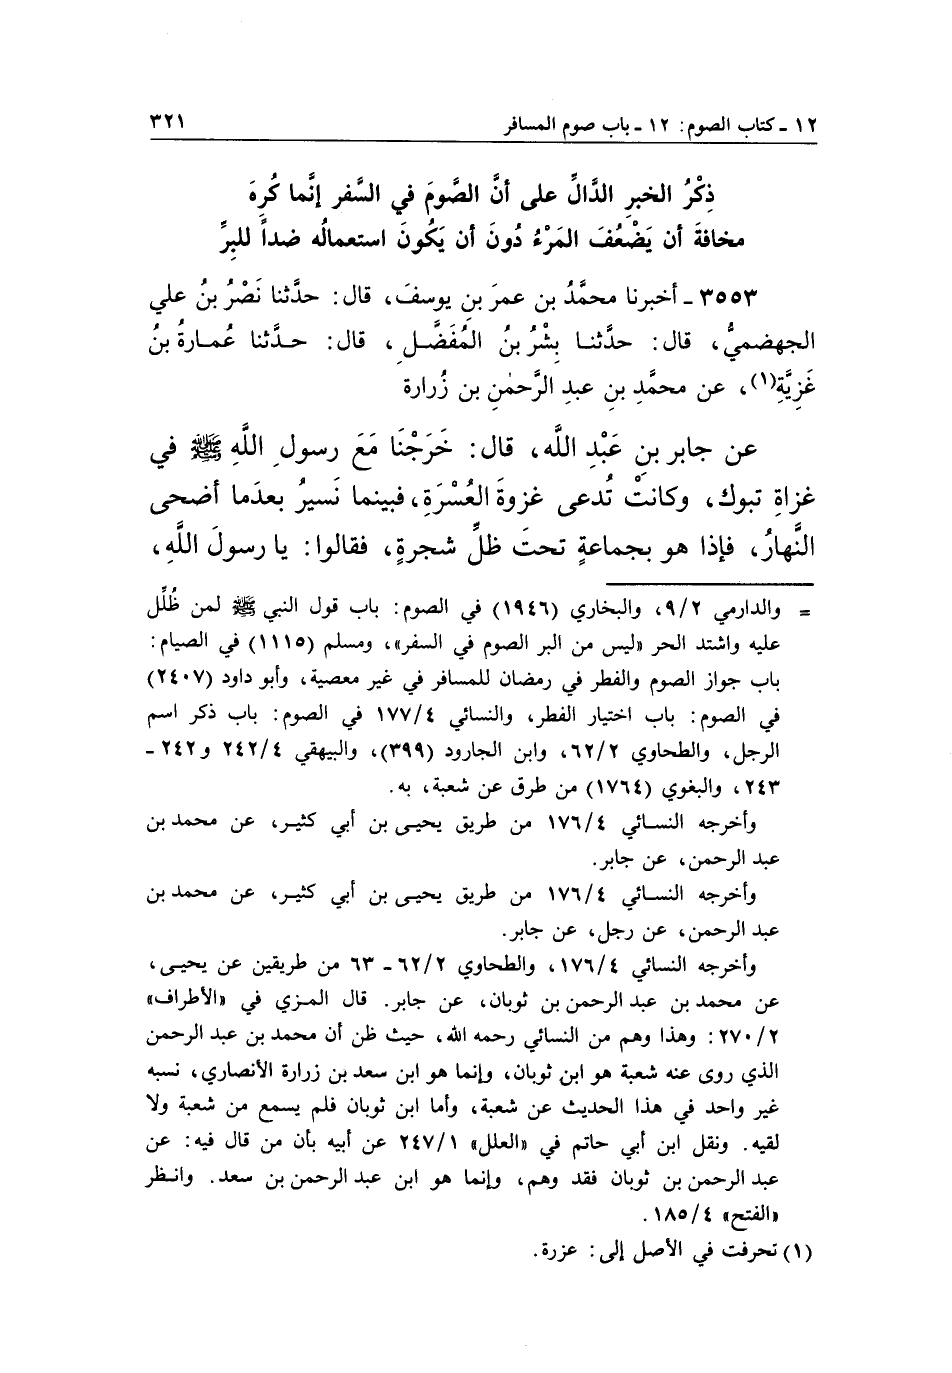 ١٢ ـ كتاب الصوم: ١٢ ـ باب صوم المسافر ٣٢١
ذِكْرُ الخبرِ الدَّالِّ على أنَّ الصَّومَ في السَّفر إنَّما كُرِهَ
مخافةَ أن يَضْعُفَ المَرْءُ دُونَ أن يَكُونَ استعمالُه ضداً للبِرِّ
٣٥٥٣ ـ أخبرنا محمَّدُ بن عمرَ بنِ يوسفَ، قال: حدَّثنا نَصْرُ بنُ علي
الجهضميُّ، قال: حدَّثنا بِشْرُ بنُ المُفَضَّلِ، قال: حدَّثنا عُمارةُ بنُ
غَزِيَّةِ(١)، عن محمَّدِ بنِ عبدِ الرَّحمٰنِ بنِ زُرارة
عن جابرِ بنِ عَبْدِ اللَّه، قال: خَرَجْنَا مَعَ رسولِ اللَّهِ ﷺ في
غزاةِ تبوك، وكانتْ تُدعى غزوةَ العُسْرَةِ، فبينما نَسيرُ بعدَما أضحى
النَّهارُ، فإذا هو بجماعةٍ تحتَ ظلِّ شجرةٍ، فقالوا: يا رسولَ اللَّه،
= والدارمي ٩/٢، والبخاري (١٩٤٦) في الصوم: باب قول النبي ﷺ لمن ظُلِّل
عليه واشتد الحر «ليس من البر الصوم في السفر»، ومسلم (١١١٥) في الصيام:
باب جواز الصوم والفطر في رمضان للمسافر في غير معصية، وأبو داود (٢٤٠٧)
في الصوم: باب اختيار الفطر، والنسائي ١٧٧/٤ في الصوم: باب ذكر اسم
الرجل، والطحاوي ٦٢/٢، وابن الجارود (٣٩٩)، والبيهقي ٢٤٢/٤ و٢٤٢ ـ
٢٤٣، والبغوي (١٧٦٤) من طرق عن شعبة، به.
وأخرجه النسائي ١٧٦/٤ من طريق يحيى بن أبي كثير، عن محمد بن
عبد الرحمن، عن جابر.
وأخرجه النسائي ١٧٦/٤ من طريق يحيى بن أبي كثير، عن محمد بن
عبد الرحمن، عن رجل، عن جابر.
وأخرجه النسائي ١٧٦/٤، والطحاوي ٦٢/٢ ـ ٦٣ من طريقين عن يحيى،
عن محمد بن عبد الرحمن بن ثوبان، عن جابر. قال المزي في «الأطراف»
٢٧٠/٢: وهذا وهم من النسائي رحمه الله، حيث ظن أن محمد بن عبد الرحمن
الذي روى عنه شعبة هو ابن ثوبان، وإنما هو ابن سعد بن زرارة الأنصاري، نسبه
غير واحد في هذا الحديث عن شعبة، وأما ابن ثوبان فلم يسمع من شعبة ولا
لقيه. ونقل ابن أبي حاتم في «العلل» ٢٤٧/١ عن أبيه بأن من قال فيه: عن
عبد الرحمن بن ثوبان فقد وهم، وإنما هو ابن عبد الرحمن بن سعد. وانظر
«الفتح» ١٨٥/٤.
(١) تحرفت في الأصل إلى: عزرة.